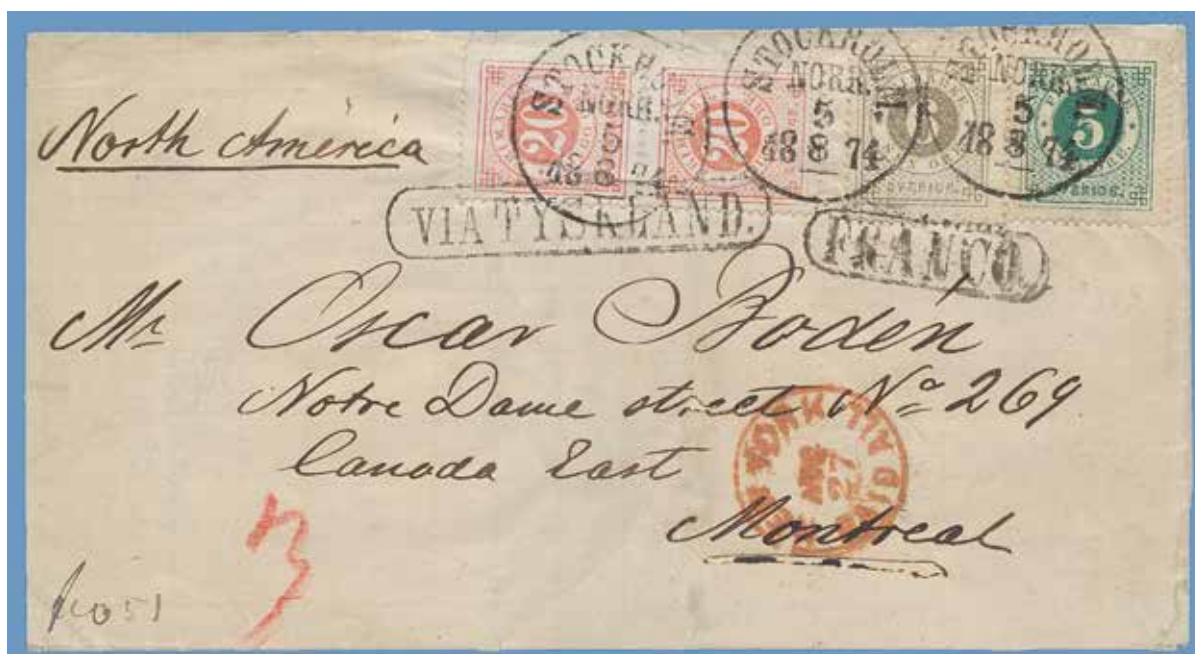 North América
STOCKHOLM NORR. 5 8 1874
STOCKHOLM NORR. 5 8 1874
STOCKHOLM NORR. 5 8 1874
20
20
6
SVERIGE.
5
SVERIGE.
VIA TYSKLAND.
FRANCO.
Mr Oscar Bodén
Notre Dame street No 269
Canada East
Montreal
NEW YORK PAID ALL
AUG
27
3